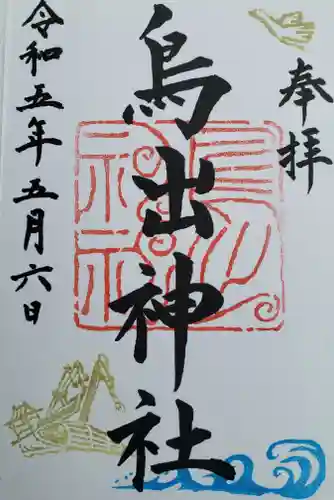 奉拝
鳥出神社
令和五年五月六日